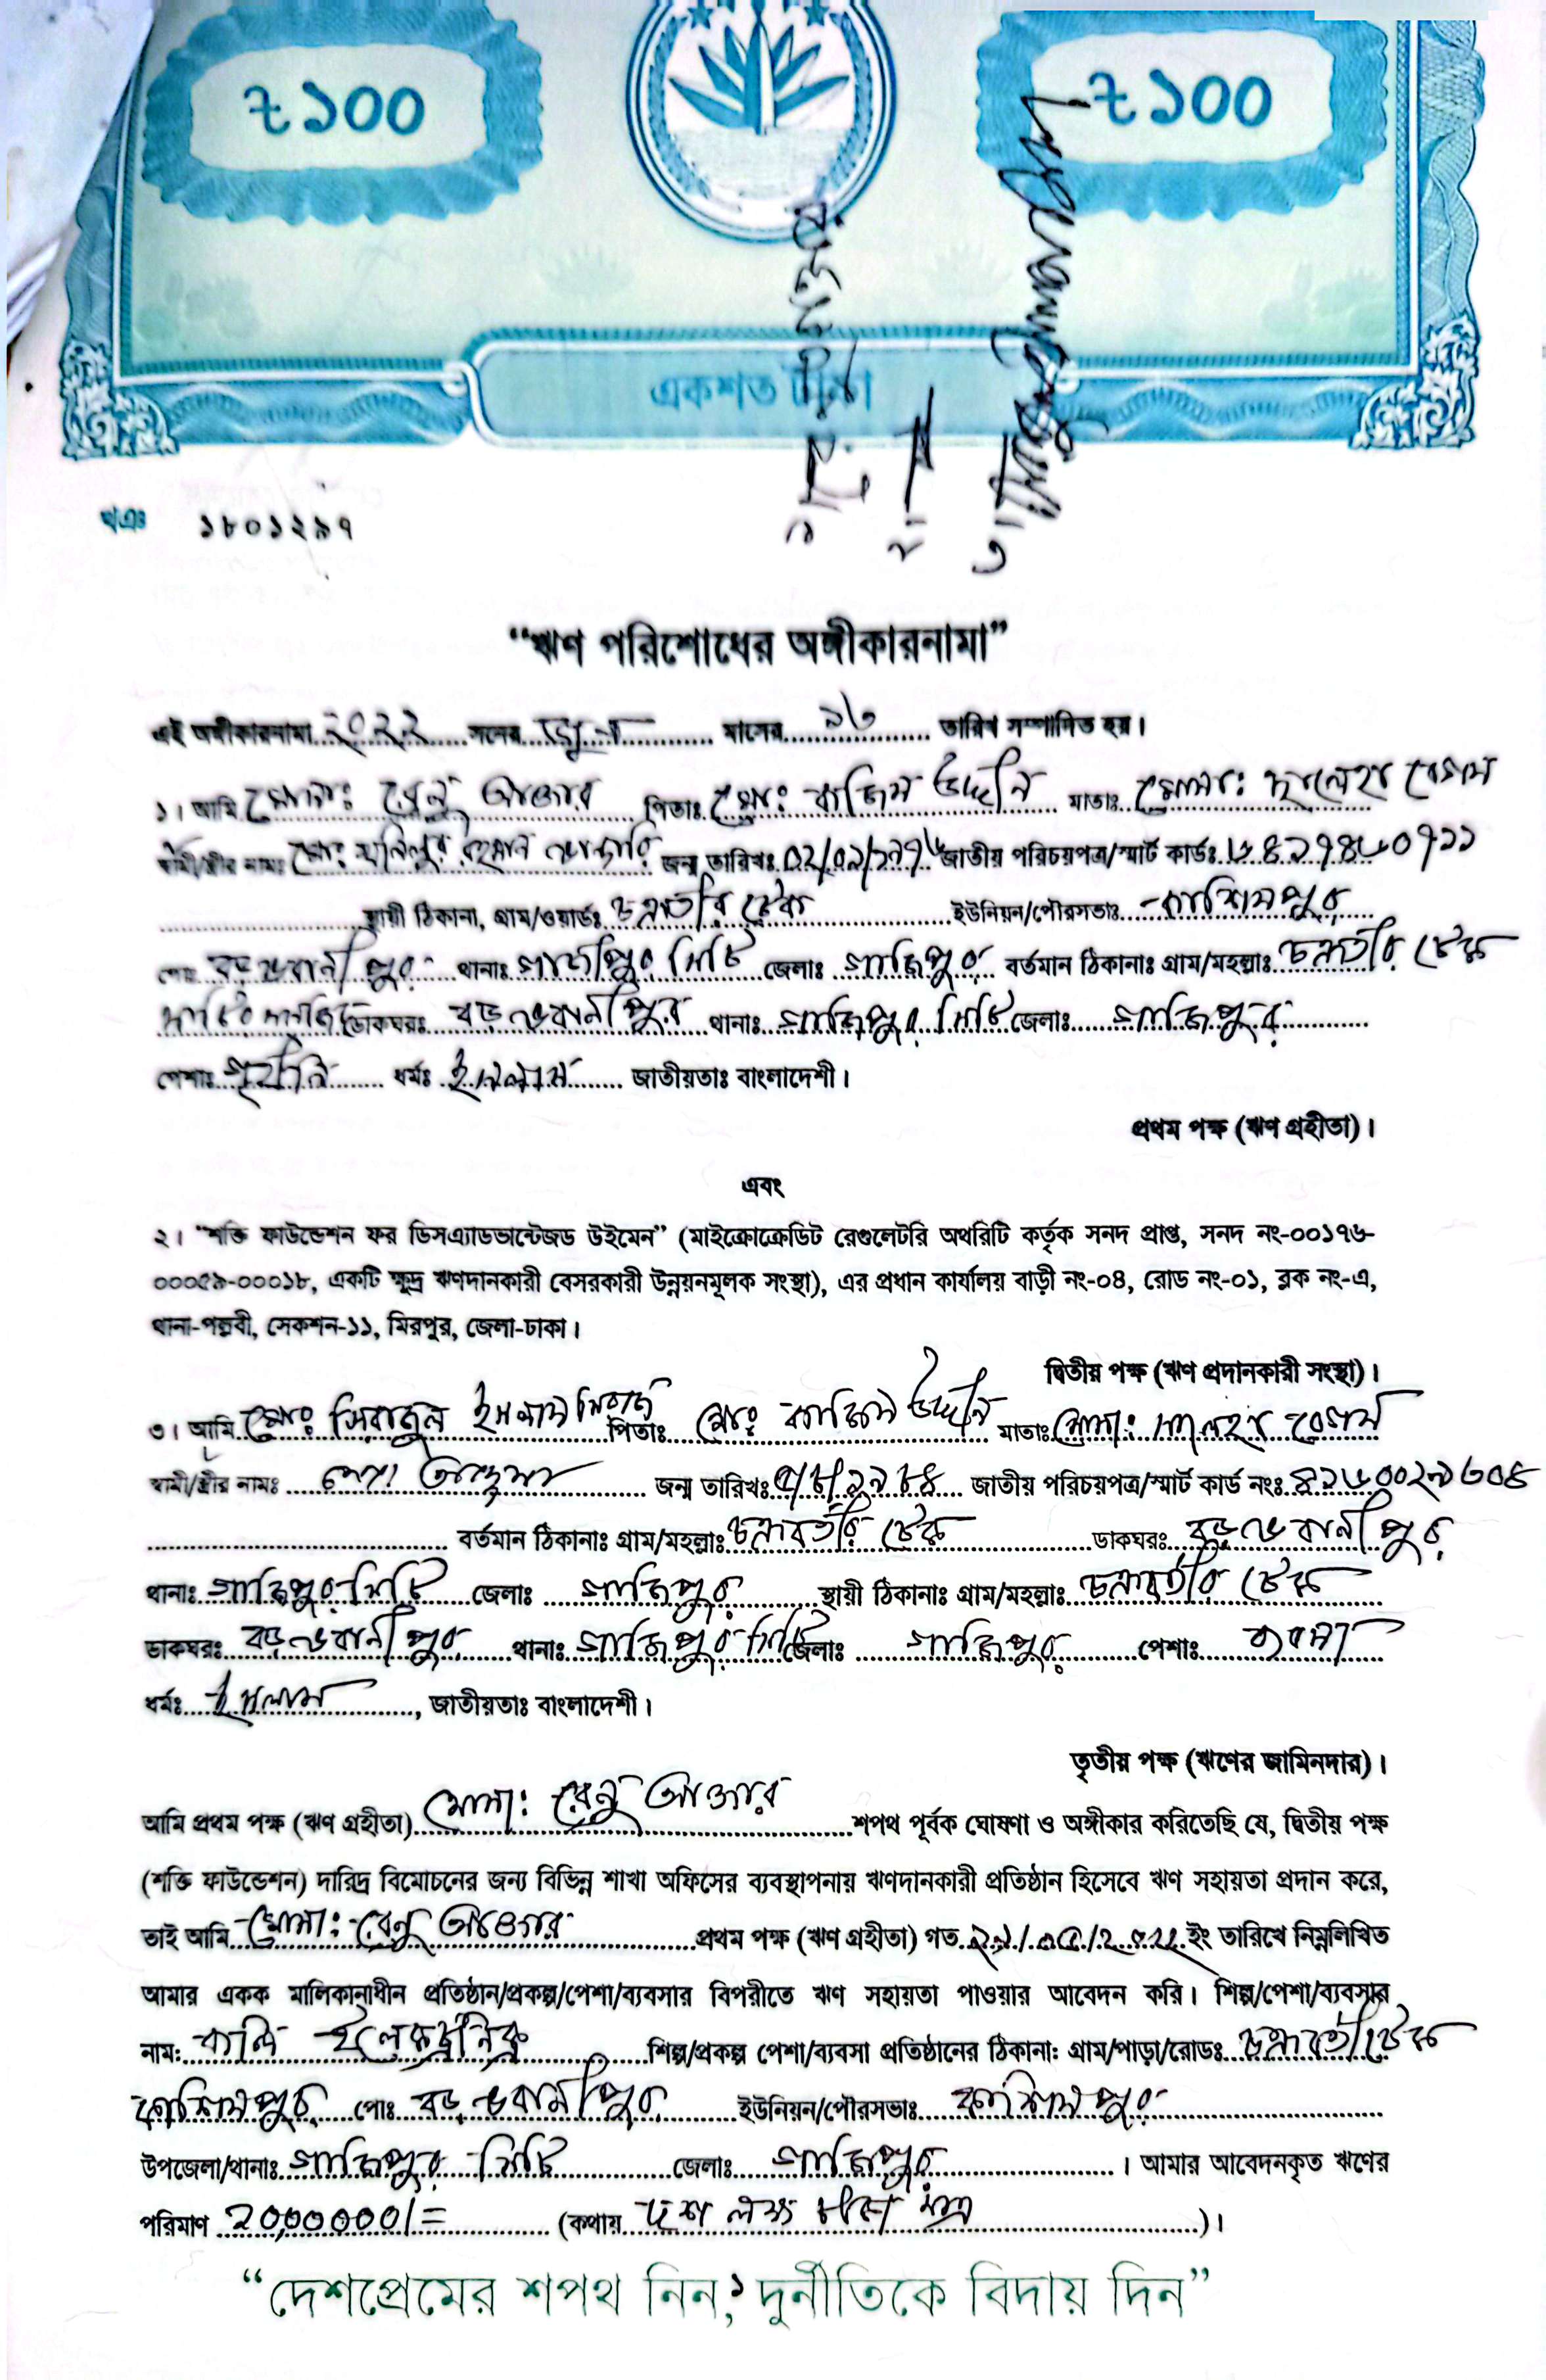 ৳১০০ ৳১০০
একশত টাকা
খএঃ ১৮০১২৯৭
“ঋণ পরিশোধের অঙ্গীকারনামা”
এই অঙ্গীকারনামা ২০২২ সনের জুন মাসের ১৬ তারিখ সম্পাদিত হয়।
১। আমি মোসাঃ রেনু আক্তার পিতাঃ মোঃ কাজিম উদ্দীন মাতাঃ মোসাঃ ছালেহা বেগম
স্বামী/স্ত্রীর নামঃ মোঃ রহমান জন্ম তারিখঃ জাতীয় পরিচয়পত্র/স্মার্ট কার্ডঃ
স্থায়ী ঠিকানা, গ্রাম/ওয়ার্ডঃ চক্রবর্তীর টেক ইউনিয়ন/পৌরসভাঃ কাশিমপুর
বড় ভবানীপুর থানাঃ গাজীপুর সিটি জেলাঃ গাজিপুর বর্তমান ঠিকানাঃ গ্রাম/মহল্লাঃ চক্রবর্তীর টেক
ডাকঘরঃ বড় ভবানীপুর থানাঃ গাজিপুর সিটি জেলাঃ গাজিপুর
পেশাঃ গৃহীনি ধর্মঃ ইসলাম জাতীয়তাঃ বাংলাদেশী।
প্রথম পক্ষ (ঋণ গ্রহীতা)।
এবং
২। “শক্তি ফাউন্ডেশন ফর ডিসএ্যাডভান্টেজড উইমেন” (মাইক্রোক্রেডিট রেগুলেটরি অথরিটি কর্তৃক সনদ প্রাপ্ত, সনদ নং-০০১৭৬-
০০০৫৯-০০০১৮, একটি ক্ষুদ্র ঋণদানকারী বেসরকারী উন্নয়নমূলক সংস্থা), এর প্রধান কার্যালয় বাড়ী নং-০৪, রোড নং-০১, ব্লক নং-এ,
থানা-পল্লবী, সেকশন-১১, মিরপুর, জেলা-ঢাকা।
দ্বিতীয় পক্ষ (ঋণ প্রদানকারী সংস্থা)।
৩। আমি মোঃ সিরাজুল ইসলাম সিরাজ পিতাঃ মোঃ কাজিম উদ্দীন মাতাঃ মোসাঃ ছালেহা বেগম
স্বামী/স্ত্রীর নামঃ জন্ম তারিখঃ জাতীয় পরিচয়পত্র/স্মার্ট কার্ড নংঃ
বর্তমান ঠিকানাঃ গ্রাম/মহল্লাঃ চক্রবর্তীর টেক ডাকঘরঃ বড় ভবানীপুর
থানাঃ গাজিপুর সিটি জেলাঃ গাজিপুর স্থায়ী ঠিকানাঃ গ্রাম/মহল্লাঃ চক্রবর্তীর টেক
ডাকঘরঃ বড় ভবানীপুর থানাঃ গাজিপুর সিটি জেলাঃ গাজিপুর পেশাঃ ব্যবসা
ধর্মঃ ইসলাম, জাতীয়তাঃ বাংলাদেশী।
তৃতীয় পক্ষ (ঋণের জামিনদার)।
আমি প্রথম পক্ষ (ঋণ গ্রহীতা) মোসাঃ রেনু আক্তার শপথ পূর্বক ঘোষণা ও অঙ্গীকার করিতেছি যে, দ্বিতীয় পক্ষ
(শক্তি ফাউন্ডেশন) দারিদ্র বিমোচনের জন্য বিভিন্ন শাখা অফিসের ব্যবস্থাপনায় ঋণদানকারী প্রতিষ্ঠান হিসেবে ঋণ সহায়তা প্রদান করে,
তাই আমি মোসাঃ রেনু আক্তার প্রথম পক্ষ (ঋণ গ্রহীতা) গত ইং তারিখে নিম্নলিখিত
আমার একক মালিকানাধীন প্রতিষ্ঠান/প্রকল্প/পেশা/ব্যবসার বিপরীতে ঋণ সহায়তা পাওয়ার আবেদন করি। শিল্প/পেশা/ব্যবসার
নাম: ইলেকট্রনিক্স শিল্প/প্রকল্প পেশা/ব্যবসা প্রতিষ্ঠানের ঠিকানা: গ্রাম/পাড়া/রোডঃ চক্রবর্তীটেক
কাশিমপুর পোঃ বড় ভবানীপুর ইউনিয়ন/পৌরসভাঃ কাশিমপুর
উপজেলা/থানাঃ গাজিপুর সিটি জেলাঃ গাজিপুর। আমার আবেদনকৃত ঋণের
পরিমাণ ১০,০০০০০/= (কথায় দশ লক্ষ টাকা মাত্র)।
“দেশপ্রেমের শপথ নিন, দুর্নীতিকে বিদায় দিন”